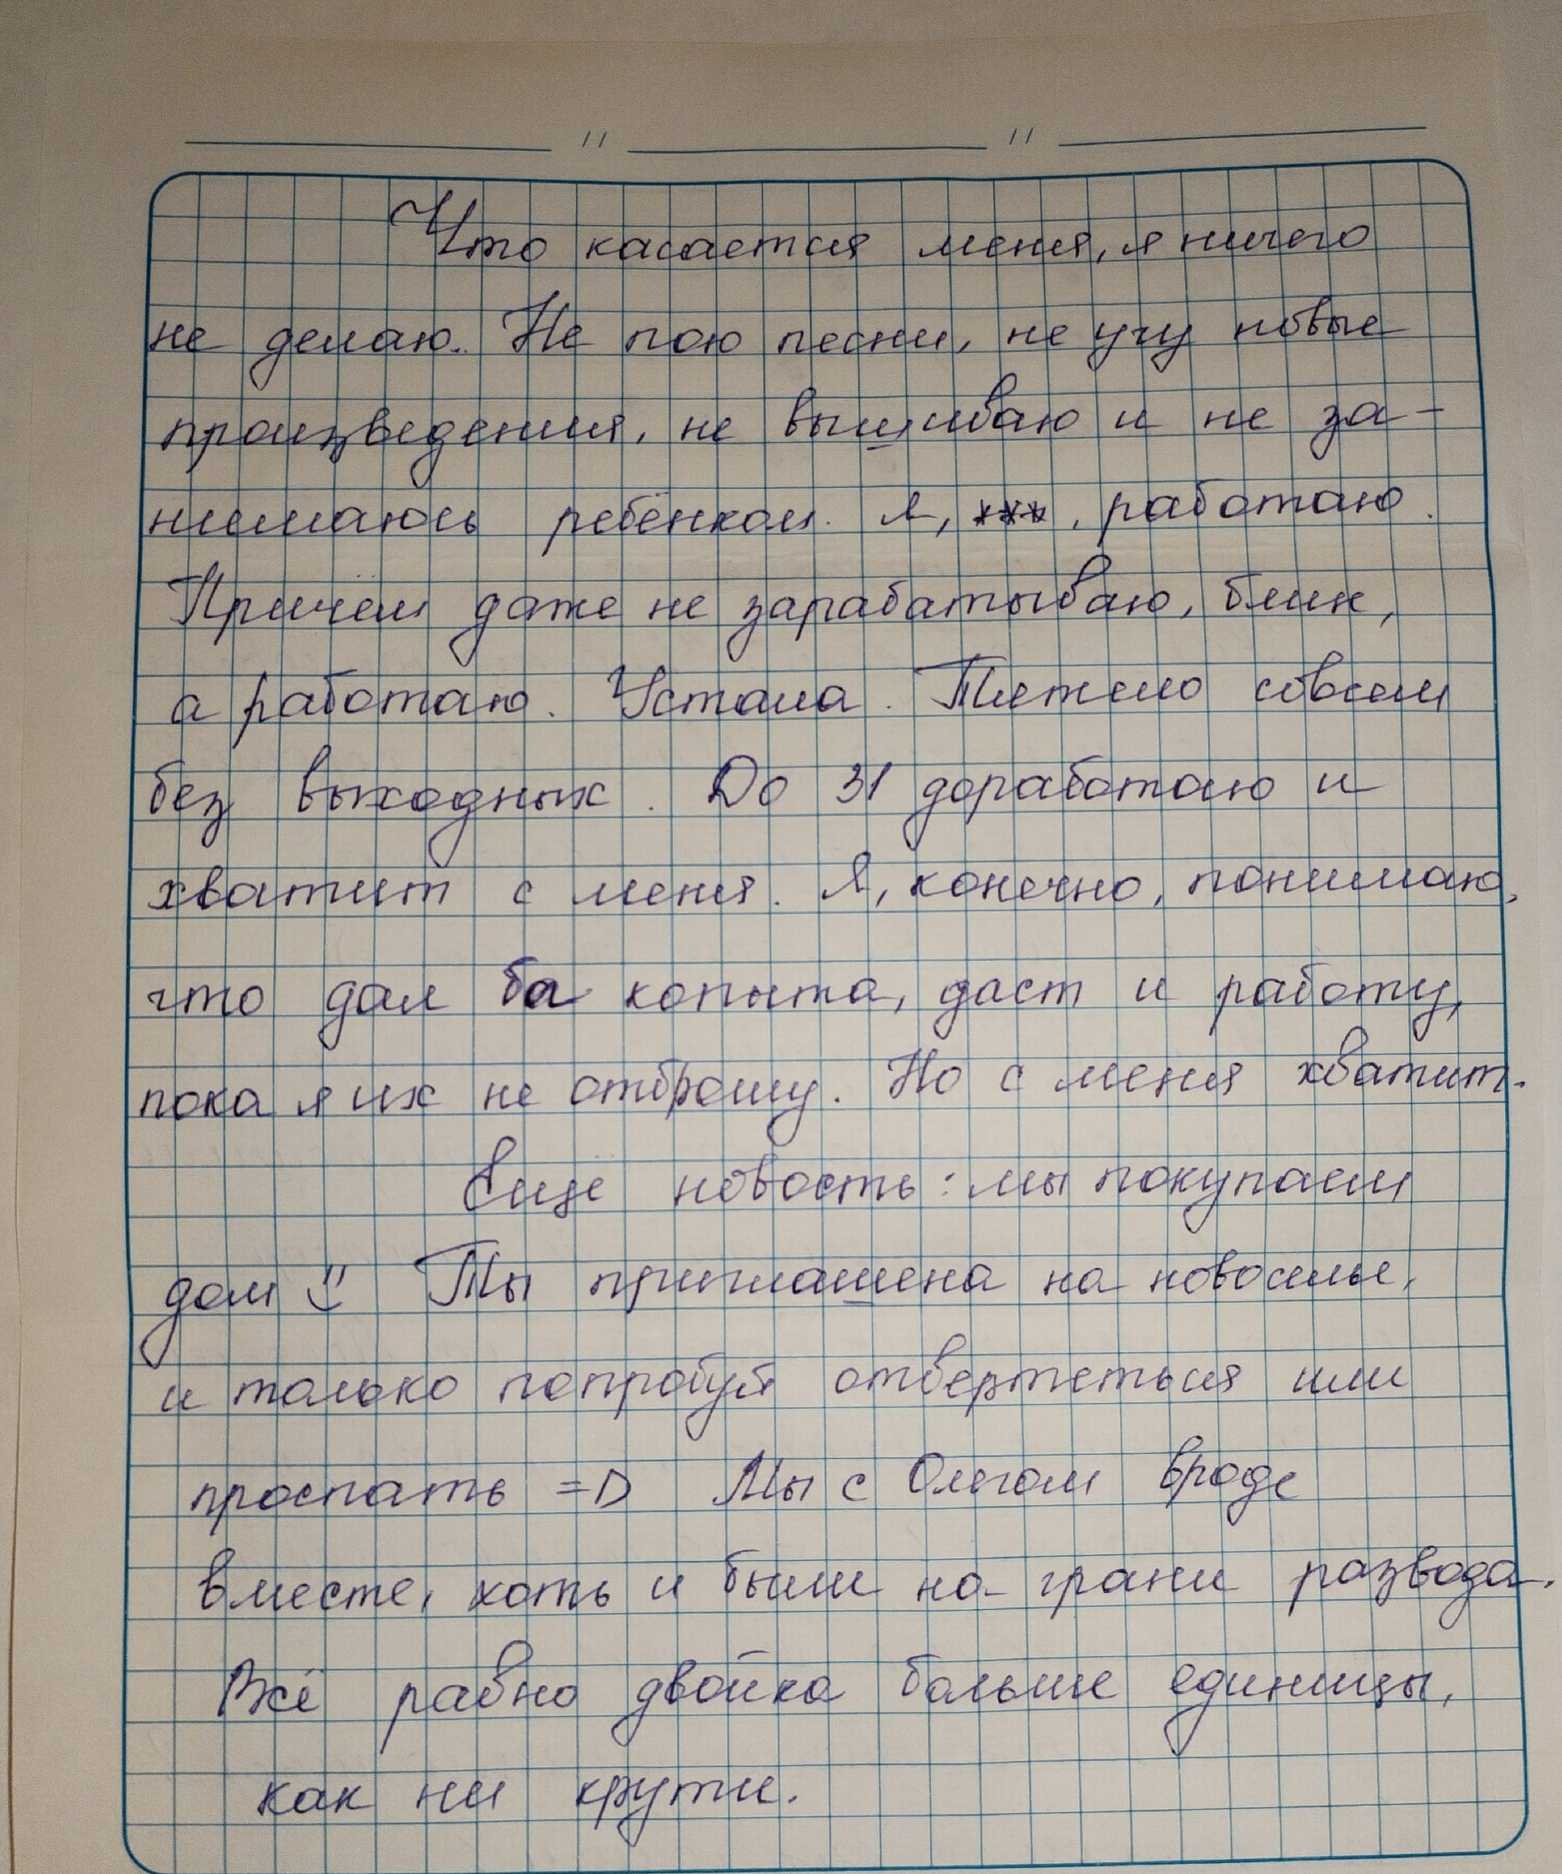 Что касается меня, я ничего
не делаю. Не пою песни, не учу новые
произведения, не вышиваю и не за-
нимаюсь ребёнком. Я, ***, работаю.
Причём даже не зарабатываю, блин,
а работаю. Устала. Тяжело совсем
без выходных. До 31 доработаю и
хватит с меня. Я, конечно, понимаю,
что дал ба копыта, даст и работу,
пока я их не отброшу. Но с меня хватит.
Ещё новость: мы покупаем
дом Ü Ты приглашена на новоселье,
и только попробуй отвертеться или
проспать =D Мы с Олегом вроде
вместе, хоть и были на грани развода.
Всё равно двойка больше единицы,
как ни крути.